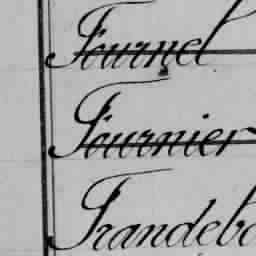 Fournel
Fournier
Frandebo